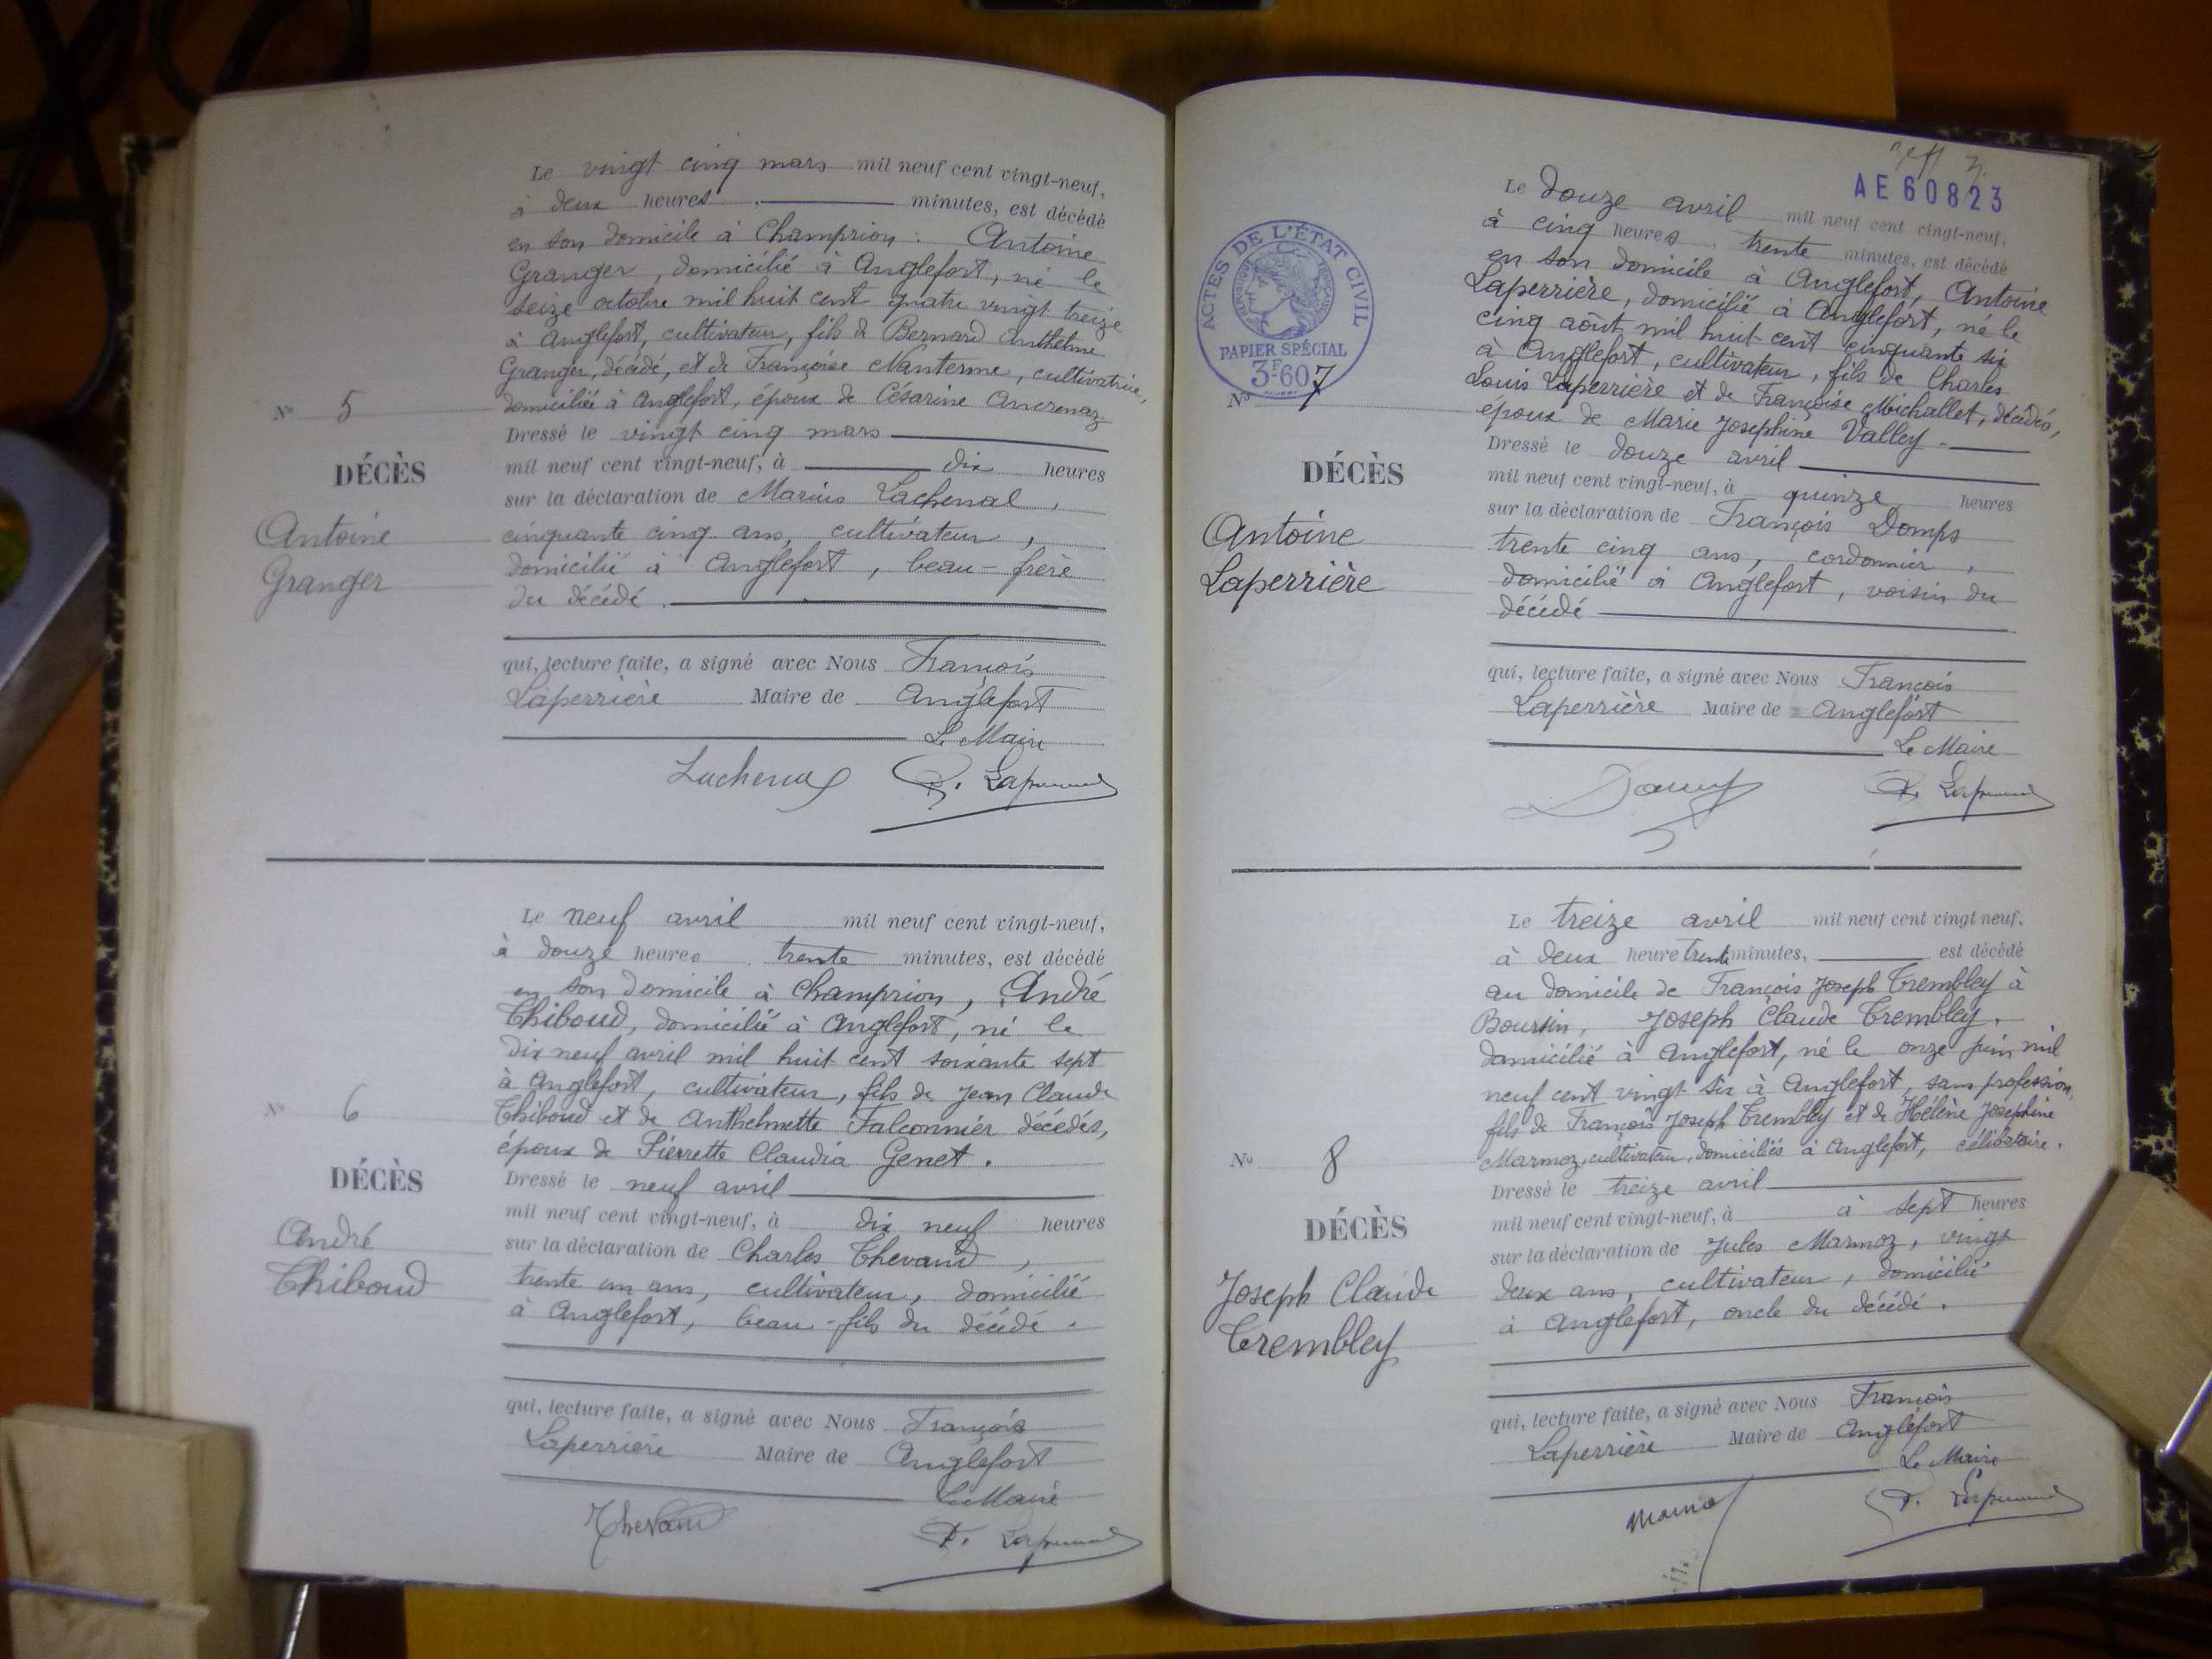 Le vingt cinq mars mil neuf cent vingt-neuf,
à deux heures minutes, est décédé
en son domicile à Champrion : Antoine
Granger, domicilié à Anglefort, né le
seize octobre mil huit cent quatre vingt treize
à Anglefort, cultivateur, fils de Bernard Anthelme
Granger, décédé, et de Françoise Nanterme, cultivatrice,
N° 5
domiciliée à Anglefort, époux de Césarine Ancrenaz
Dressé le vingt cinq mars
DÉCÈS
mil neuf cent vingt-neuf, à dix heures
sur la déclaration de Marius Lachenal,
Antoine
Granger
cinquante cinq ans, cultivateur,
domicilié à Anglefort, beau-frère
du décédé.
qui, lecture faite, a signé avec Nous François
Laperrière Maire de Anglefort
Le Maire
Lachenal F. Laperrière
Le neuf avril mil neuf cent vingt-neuf,
à douze heures trente minutes, est décédé
en son domicile à Champrion, André
Thiboud, domicilié à Anglefort, né le
dix neuf avril mil huit cent soixante sept
à Anglefort, cultivateur, fils de Jean Claude
N° 6
Thiboud et de Anthelmette Falconnier décédés,
époux de Pierrette Claudia Genet.
DÉCÈS
Dressé le neuf avril
mil neuf cent vingt-neuf, à dix neuf heures
André
Thiboud
sur la déclaration de Charles Thevand,
trente un ans, cultivateur, domicilié
à Anglefort, beau-fils du décédé.
qui, lecture faite, a signé avec Nous François
Laperrière Maire de Anglefort
Le Maire
Thevand F. Laperrière
AE60823
ACTES DE L'ÉTAT CIVIL
RÉPUBLIQUE FRANÇAISE
PAPIER SPÉCIAL
3F.60
Le douze avril mil neuf cent vingt-neuf,
à cinq heures trente minutes, est décédé
en son domicile à Anglefort, Antoine
Laperrière, domicilié à Anglefort, né le
cinq août mil huit cent cinquante six
à Anglefort, cultivateur, fils de Charles
N° 7
Louis Laperrière et de Françoise Michallet, décédés,
époux de Marie Josephine Valley.
Dressé le douze avril
DÉCÈS
mil neuf cent vingt-neuf, à quinze heures
sur la déclaration de François Domps
Antoine
Laperrière
trente cinq ans, cordonnier,
domicilié à Anglefort, voisin du
décédé
qui, lecture faite, a signé avec Nous François
Laperrière Maire de Anglefort
Le Maire
F. Laperrière
Le treize avril mil neuf cent vingt neuf,
à deux heure trente minutes, est décédé
au domicile de François Joseph Trembley à
Boursin, Joseph Claude Trembley,
domicilié à Anglefort, né le onze juin mil
neuf cent vingt six à Anglefort, sans profession,
fils de François Joseph Trembley et de Hélène Josephine
N° 8
Marmoz, cultivateur, domiciliés à Anglefort, célibataire.
Dressé le treize avril
DÉCÈS
mil neuf cent vingt-neuf, à à sept heures
sur la déclaration de Jules Marmoz, vingt
Joseph Claude
Trembley
deux ans, cultivateur, domicilié
à Anglefort, oncle du décédé.
qui, lecture faite, a signé avec Nous François
Laperrière Maire de Anglefort
Le Maire
F. Laperrière